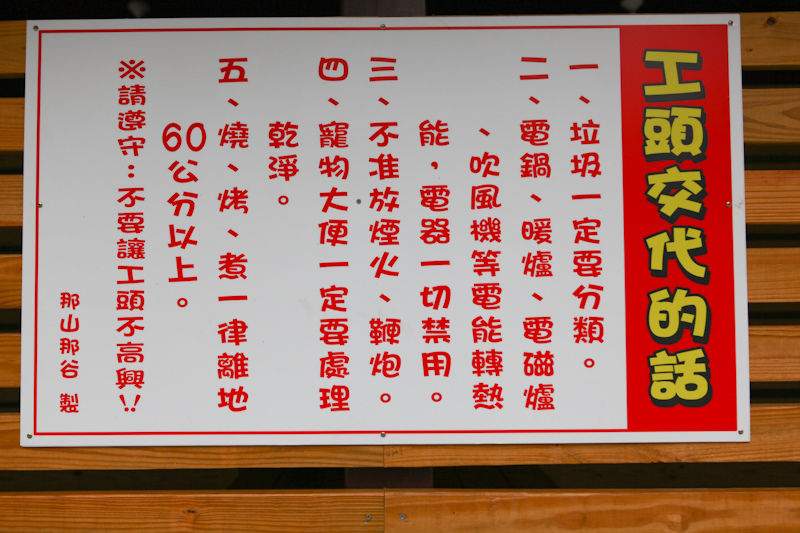 工頭交代的話
一、垃圾一定要分類。
二、電鍋、暖爐、電磁爐
、吹風機等電能轉熱
能，電器一切禁用。
三、不准放煙火、鞭炮。
四、寵物大便一定要處理
乾淨。
五、燒、烤、煮一律離地
60公分以上。
※請遵守：不要讓工頭不高興!!
那山那谷 製